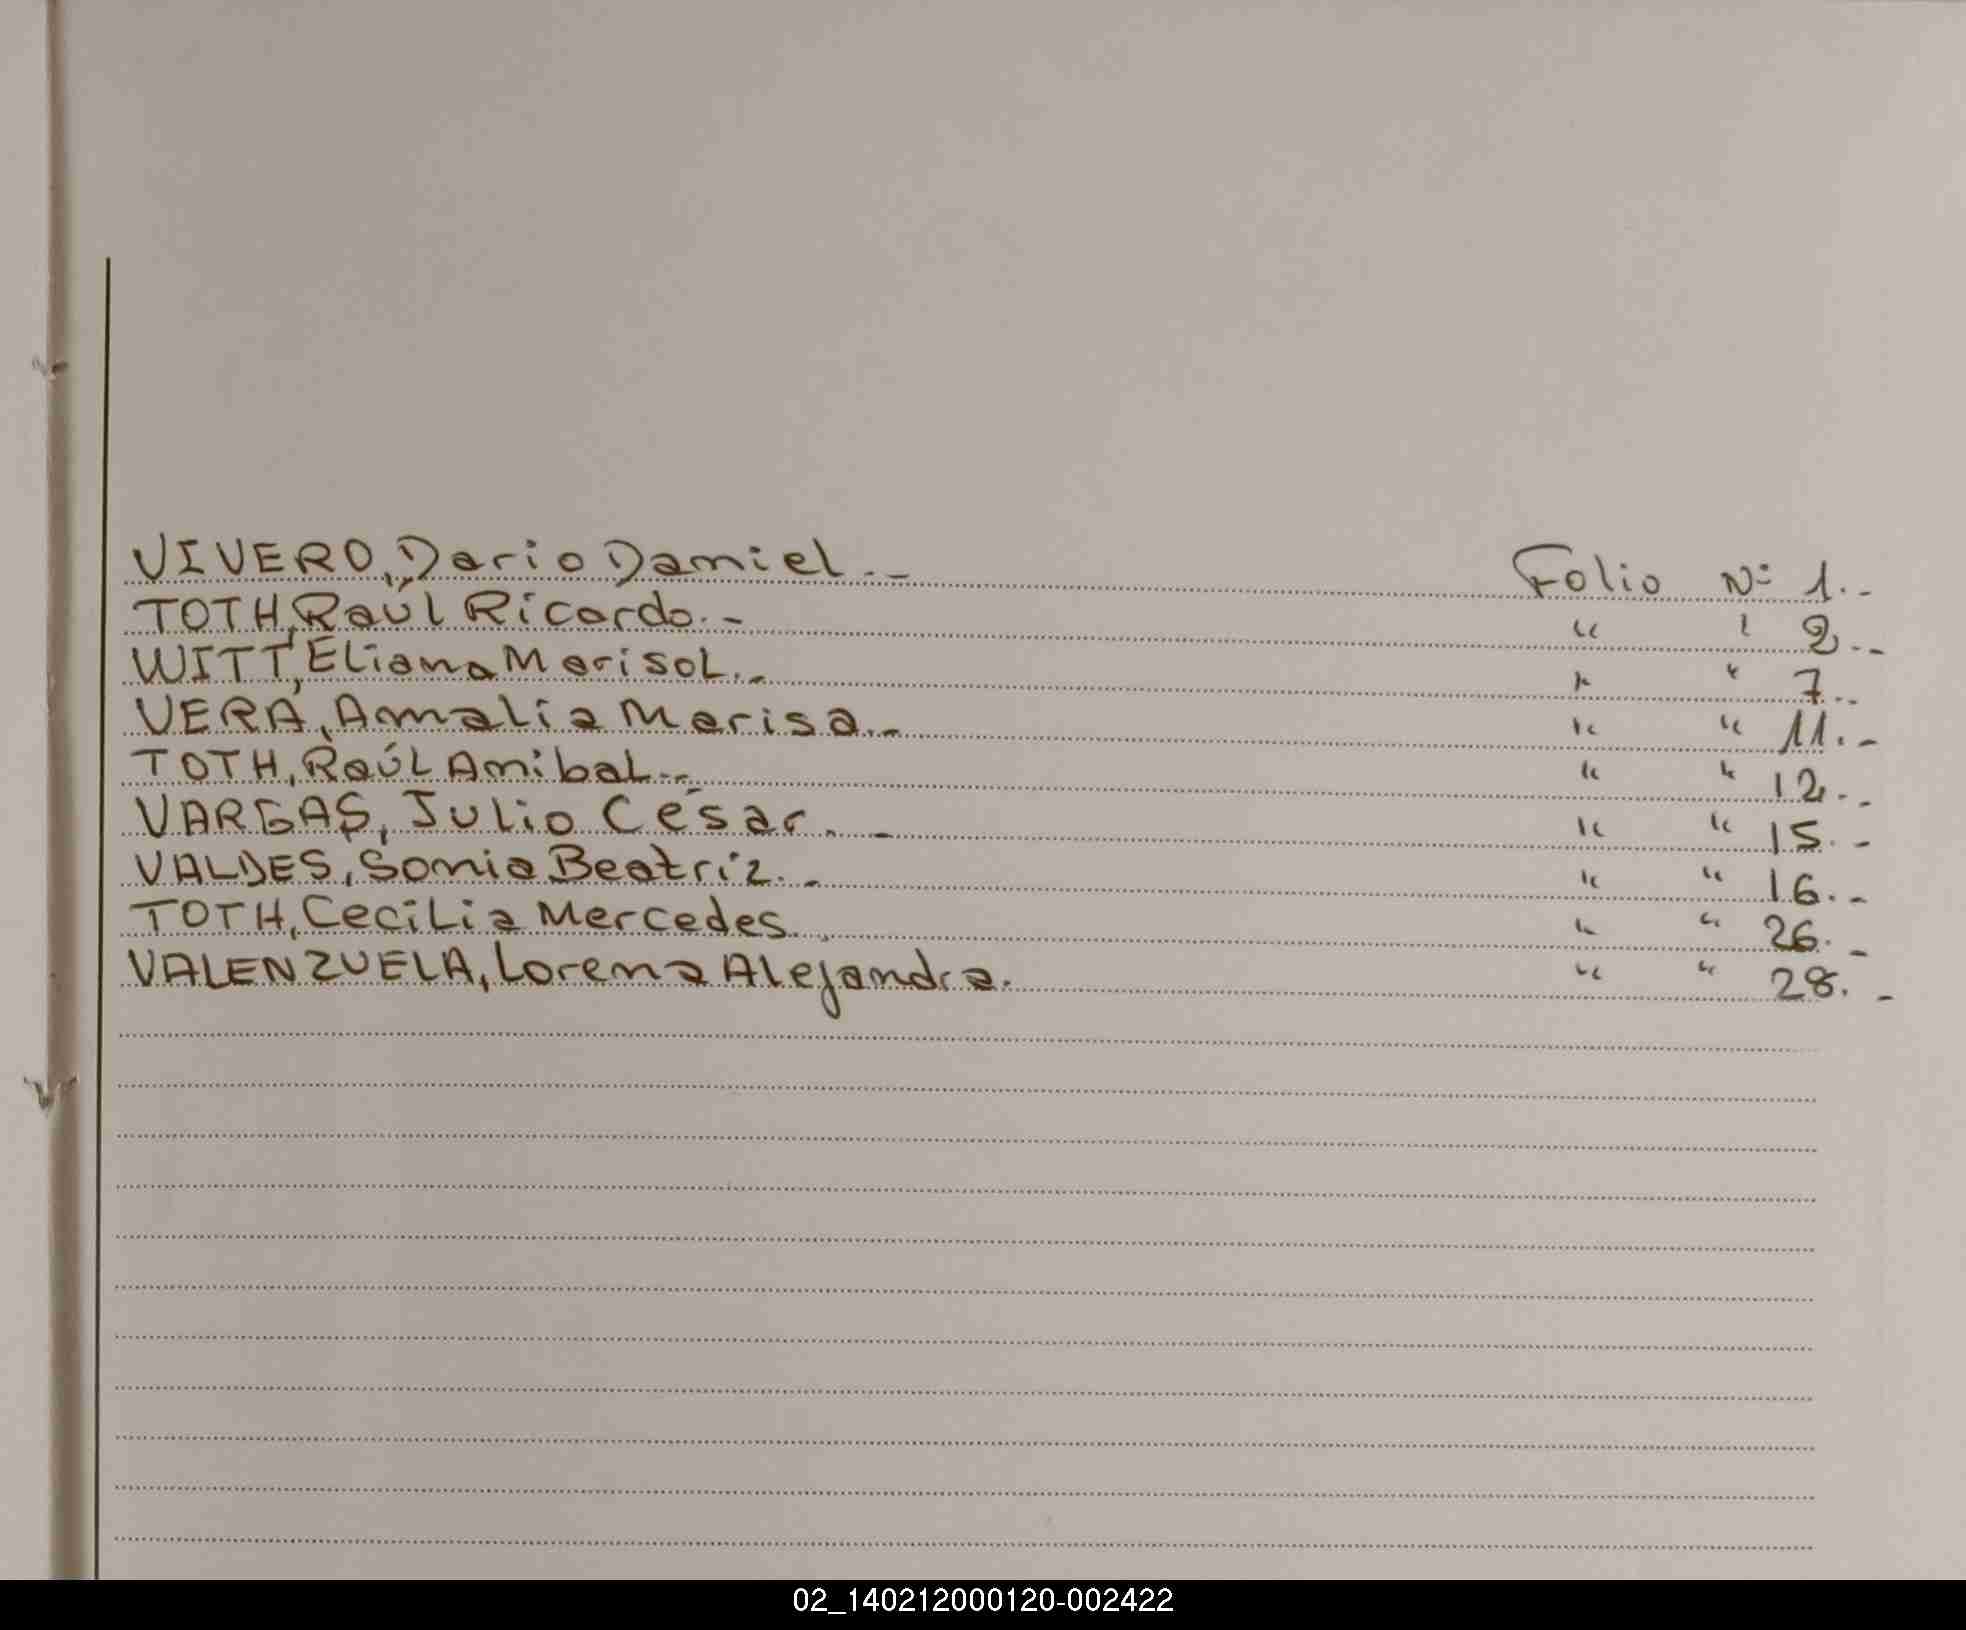 VIVERO, Dario Damiel.- Folio Nº 1.-
TOTH, Raúl Ricardo.- " " 2.-
WITT, Eliana Marisol.- " " 7.-
VERA, Amalia Marisa.- " " 11.-
TOTH, Raúl Anibal.- " " 12.-
VARGAS, Julio César.- " " 15.-
VALDES, Sonia Beatriz.- " " 16.-
TOTH, Cecilia Mercedes.. " " 26.-
VALENZUELA, Lorena Alejandra. " " 28.-
02_140212000120-002422